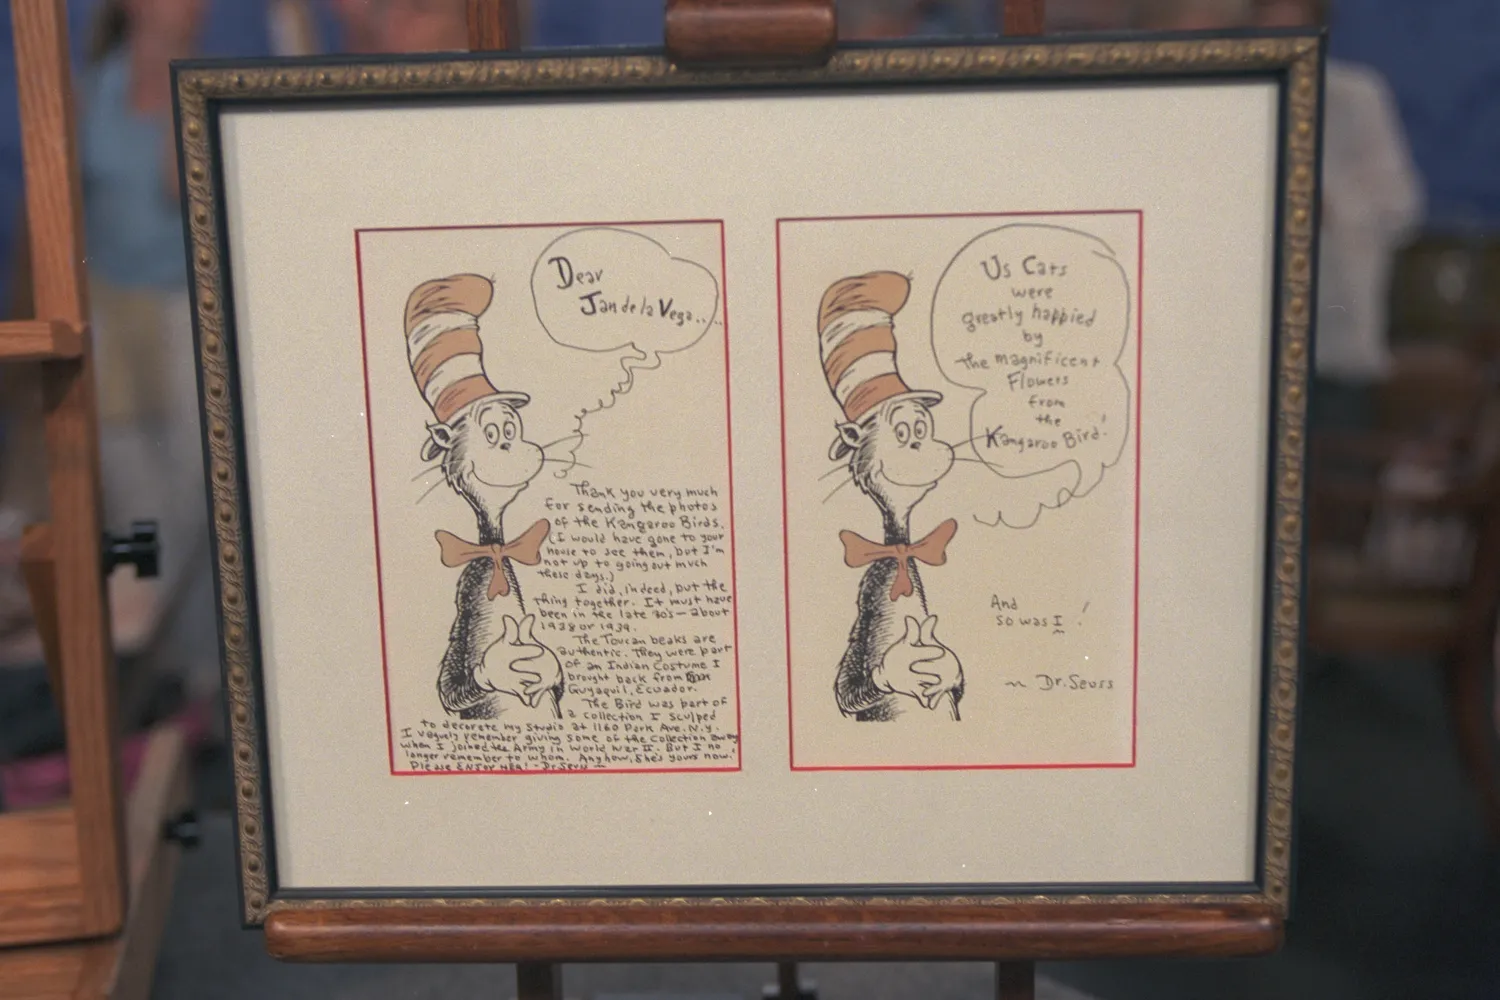 Dear
Jan de la Vega....
Thank you very much
for sending the photos
of the Kangaroo Birds.
(I would have gone to your
house to see them, but I'm
not up to going out much
these days.)
I did, indeed, put the
thing together. It must have
been in the late 30's — about
1938 or 1939.
The Toucan beaks are
authentic. They were part
of an Indian Costume I
brought back from
Guyaquil, Ecuador.
The Bird was part of
a collection I sculped
to decorate my studio at 1160 Park Ave. N.Y.
I vaguely remember giving some of the collection away
when I joined the Army in World War II. But I no
longer remember to whom. Anyhow, she's yours now!
Please ENJOY HER! - Dr. Seuss —
Us Cats
were
greatly happied
by
the magnificent
Flowers
from
the
Kangaroo Bird!
And
so was I !
~ Dr. Seuss